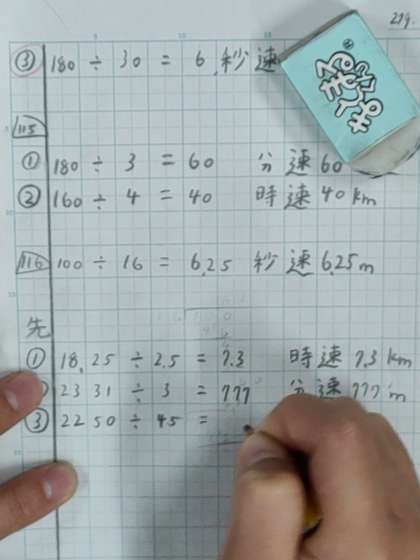 219.
③ 180 ÷ 30 = 6 秒速
115
① 180 ÷ 3 = 60 分速 60
② 160 ÷ 4 = 40 時速 40 km
116 100 ÷ 16 = 6.25 秒速 6.25 m
先
① 18.25 ÷ 2.5 = 7.3 時速 7.3 km
② 2331 ÷ 3 = 777 分速 777 m
③ 2250 ÷ 45 =